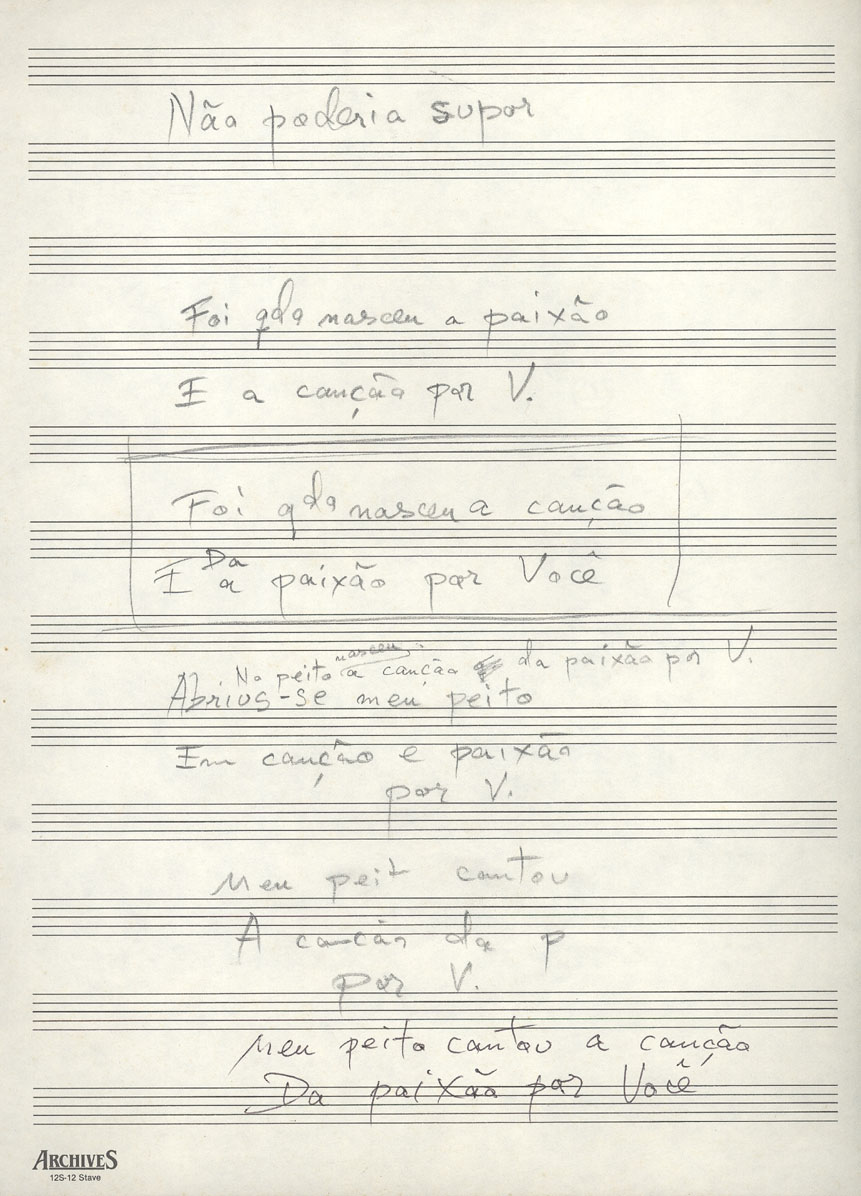 Não poderia supor
Foi qdo nasceu a paixão
E a canção por V.
Foi qdo nasceu a canção
Da
E a paixão por Você
nasceu
No peito a canção da paixão por V.
Abriu-se meu peito
Em canção e paixão
por V.
Meu peit cantou
A canção da p
por V.
Meu peito cantou a canção
Da paixão por Você
ARCHIVES
12S-12 Stave